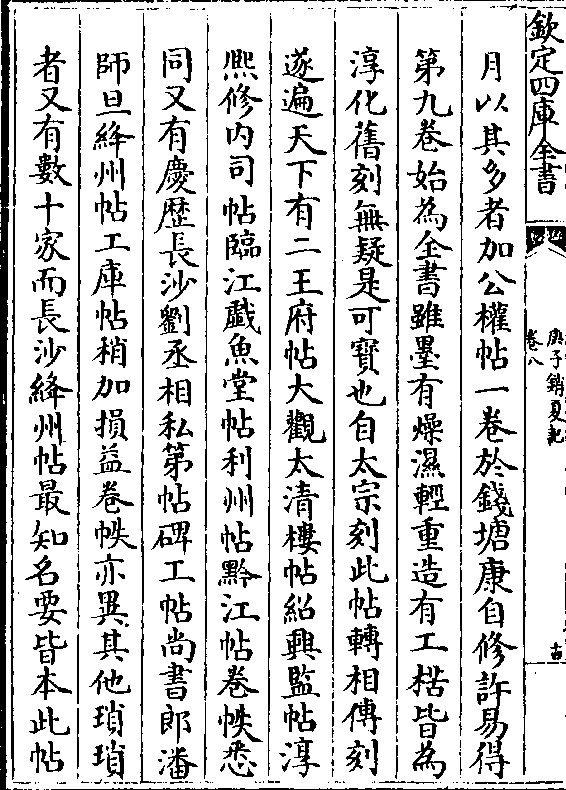 欽定四庫全書
庚子銷夏記
卷八
月以其多者加公權帖一卷於錢塘康自修許易得
第九卷始為全書雖墨有燥濕輕重造有工楛皆為
淳化舊刻無疑是可寳也自太宗刻此帖轉相傳刻
遂遍天下有二王府帖大觀太清樓帖紹興監帖淳
熈修内司帖臨江戲魚堂帖利州帖黔江帖卷帙悉
同又有慶歴長沙劉丞相私第帖碑工帖尚書郎潘
師旦絳州帖工庫帖稍加損益卷帙亦異其他瑣瑣
者又有數十家而長沙絳州帖最知名要皆本此帖